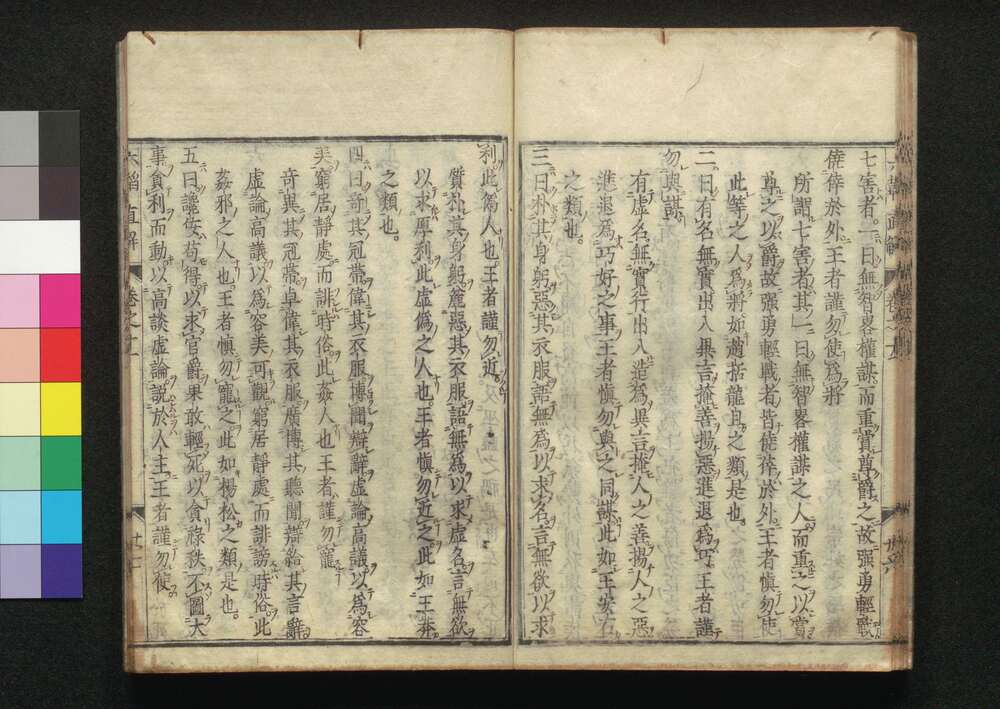 七害者一曰無智畧權謀而重賞尊爵之故强勇輕戰
僥倖於外王者謹勿使爲將
所謂七害者其一曰無智畧權謀之人而重之以賞
尊之以爵故强勇輕戰者皆僥倖於外王者慎勿使
此等之人爲將如趙括龍且之類是也
二曰有名無實出入異言掩善揚惡進退爲巧王者謹
勿與謀
有虛名無實行出入造爲異言掩人之善揚人之惡
進退爲巧好之事王者慎勿與之同謀此如王安石
之類也
三曰朴其身躬惡其衣服語無爲以求名言無欲以求
利此僞人也王者謹勿近
質朴其身躬麄惡其衣服語無爲以求虛名言無欲
以求厚利此虛僞之人也王者慎勿近之此如王莽
之類也
四曰奇其冠帶偉其衣服博聞辯辭虛論高議以爲容
美窮居靜處而誹時俗此姦人也王者謹勿寵
奇異其冠帶卓偉其衣服廣博其聽聞辯給其言辭
虛論高議以爲容美可觀窮居靜處而誹謗時俗此
姦邪之人也王者慎勿寵之此如楊松之類是也
五曰讒佞苟得以求官爵果敢輕死以貪祿秩不圖大
事貪利而動以高談虛論說於人主王者謹勿使
六韜直解
卷之十一